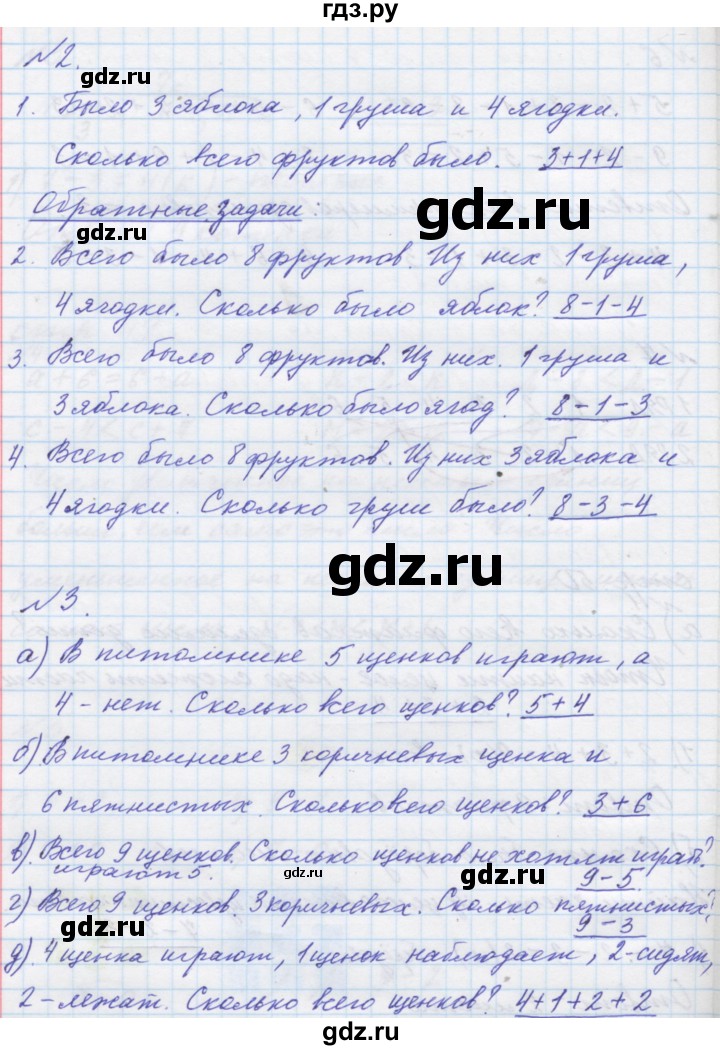 гдз.ру
№2.
gdz.ru
1. Было 3 яблока, 1 груша и 4 ягодки.
Сколько всего фруктов было. 3+1+4
gdz.ru
Обратные задачи:
gdz.ru
2. Всего было 8 фруктов. Из них 1 груша,
4 ягодки. Сколько было яблок? 8-1-4
3. Всего было 8 фруктов. Из них. 1 груша и
3 яблока. Сколько было ягод? 8-1-3
4. Всего было 8 фруктов. Из них 3 яблока и
4 ягодки. Сколько груш было? 8-3-4
gdz.ru
№3.
а) В питомнике 5 щенков играют, а
4 - нет. Сколько всего щенков? 5+4
gdz.ru
б) В питомнике 3 коричневых щенка и
6 пятнистых. Сколько всего щенков? 3+6
в). Всего 9 щенков. Сколько щенков не хотят играть?
играют 5. 9-5
gdz.ru
г) Всего 9 щенков. 3 коричневых. Сколько пятнистых?
9-3
gdz.ru
gdz.ru
д). 4 щенка играют, 1 щенок наблюдает, 2-сидят,
2-лежат. Сколько всего щенков? 4+1+2+2
gdz.ru